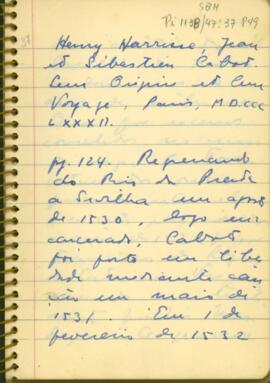 SBH
Pi 1138/47:37 P49
Henry Harrisse, Jean
et Sébastien Cabot.
Leur Origine et Leur
Voyage, Paris, M.D.CCC
L XXXII.
pg. 124. Regressando
do Rio da Prata
a Sevilha em agosto
de 1530, logo en-
carcerado, Caboto
foi posto em liber
dade mediante cau
ção em maio de
1531. Em 1 de
fevereiro de 1532